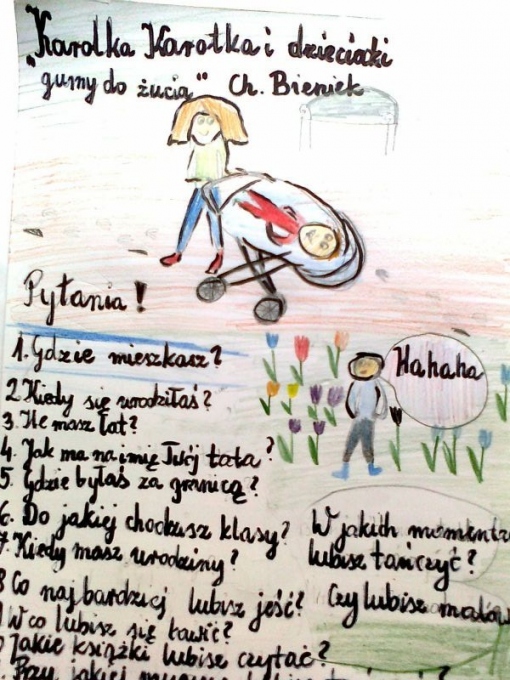 "Karolka Karotka i dzieciaki
gumy do żucia" Ch. Bieniek
Pytania!
1. Gdzie mieszkasz?
2. Kiedy się urodziłaś?
3. Ile masz lat?
4. Jak ma na imię Twój tata?
5. Gdzie byłaś za granicą?
6. Do jakiej chodzisz klasy?
7. Kiedy masz urodziny?
8 Co najbardziej lubisz jeść?
W co lubisz się bawić?
Jakie książki lubisz czytać?
Przy jakiej
Hahaha
W jakich
lubisz tańczyć?
Czy lubisz